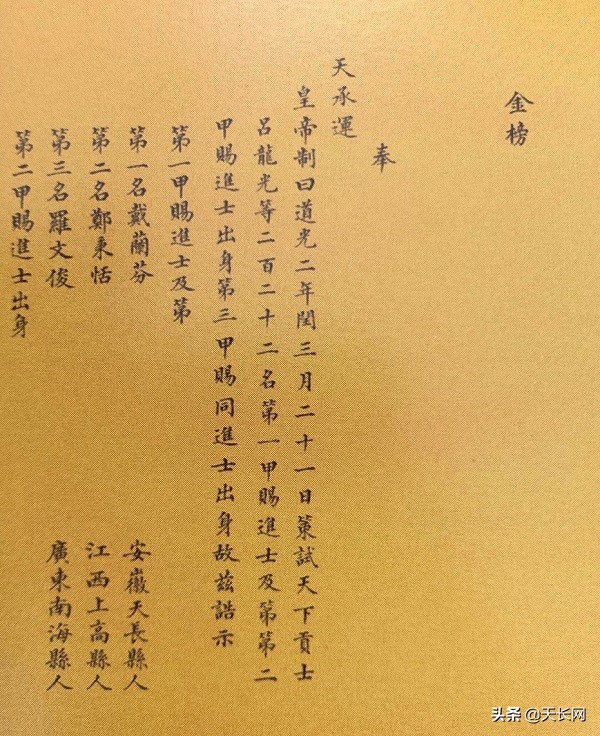 金榜
奉
天承運
皇帝制曰道光二年閏三月二十一日策試天下貢士
呂龍光等二百二十二名第一甲賜進士及第第二
甲賜進士出身第三甲賜同進士出身故茲誥示
第一甲賜進士及第
第一名戴蘭芬 安徽天長縣人
第二名鄭秉恬 江西上高縣人
第三名羅文俊 廣東南海縣人
第二甲賜進士出身
头条 @天长网